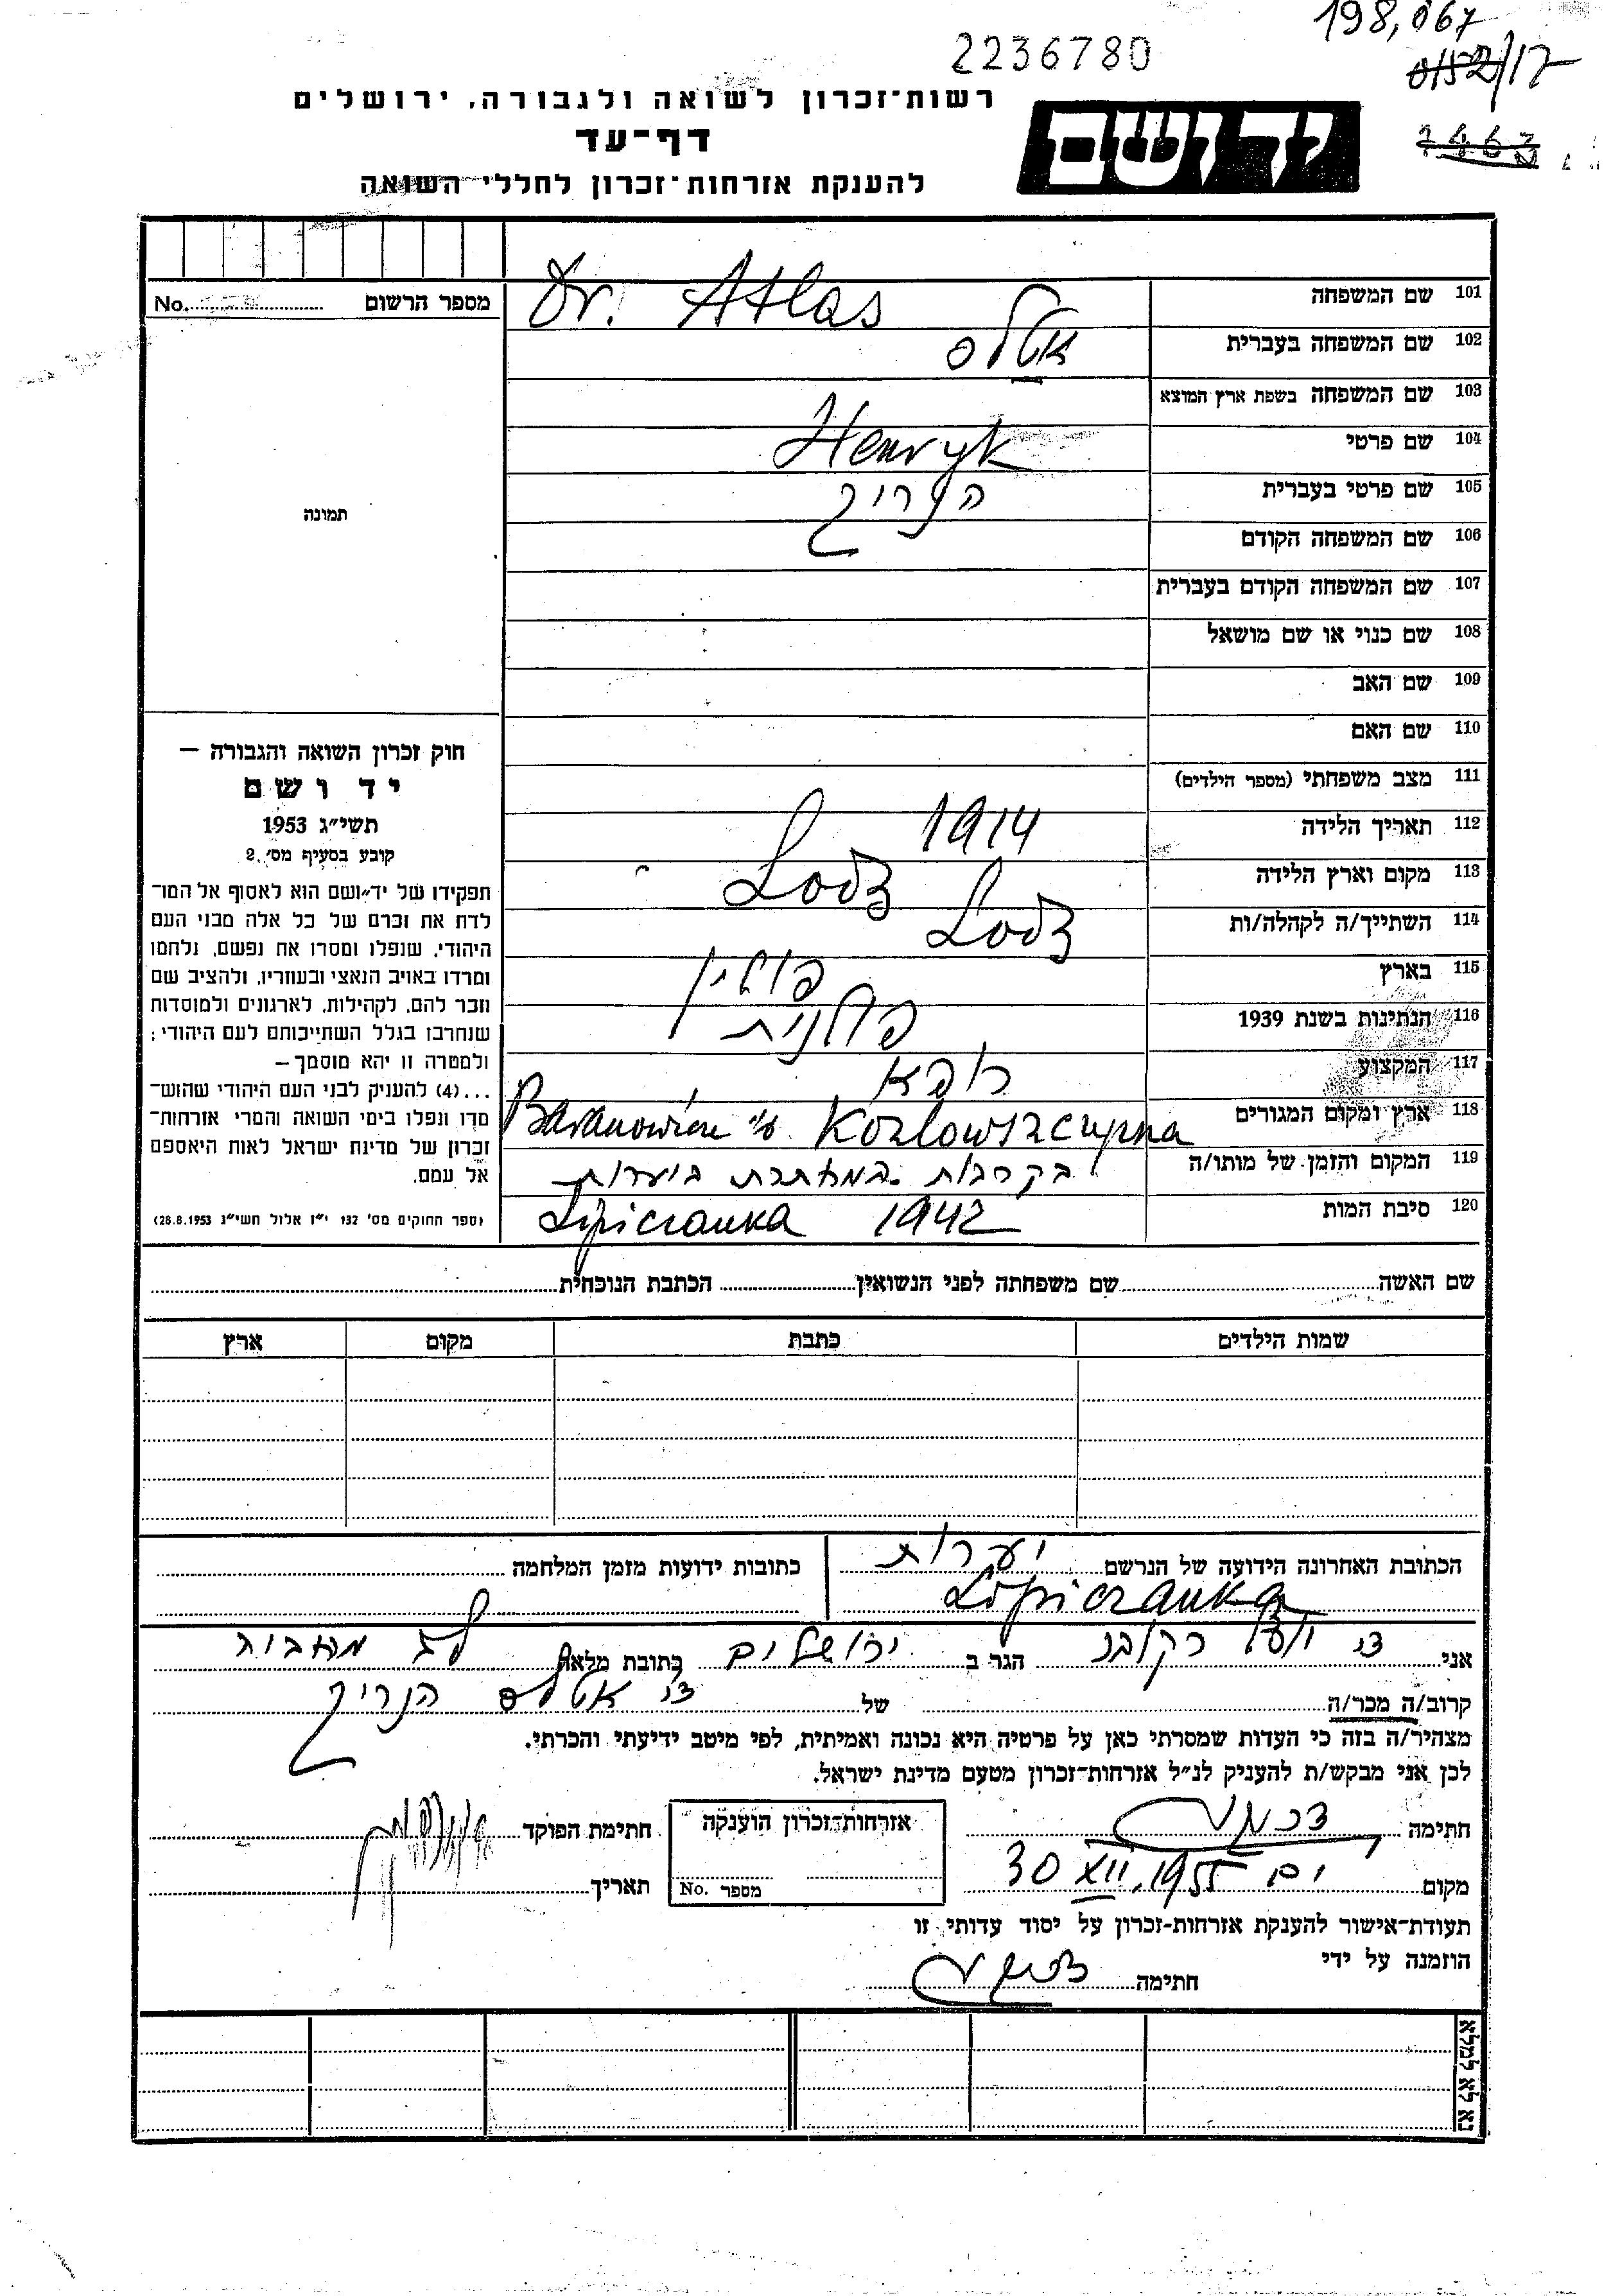 198,067
2236780
0152/17
7463
רשות־זכרון לשואה ולגבורה, ירושלים
דף־עד
להענקת אזרחות־זכרון לחללי השואה
יד ושם
101 שם המשפחה Dr. Atlas
102 שם המשפחה בעברית אטלס
103 שם המשפחה בשפת ארץ המוצא
104 שם פרטי Henryk
105 שם פרטי בעברית הנריך
106 שם המשפחה הקודם
107 שם המשפחה הקודם בעברית
108 שם כנוי או שם מושאל
109 שם האב
110 שם האם
111 מצב משפחתי (מספר הילדים)
112 תאריך הלידה 1914
113 מקום וארץ הלידה Lodz
114 השתייך/ה לקהלה/ות Lodz
115 בארץ פולין
116 הנתינות בשנת 1939 פולנית
117 המקצוע רופא
118 ארץ ומקום המגורים Kozlowszczyzna
119 המקום והזמן של מותו/ה בקרבות
120 סיבת המות Lipiczanka 1942
מספר הרשום No.
תמונה
חוק זכרון השואה והגבורה –
יד ושם
תשי״ג 1953
קובע בסעיף מס׳ 2.
תפקידו של יד־ושם הוא לאסוף אל המו־
לדת את זכרם של כל אלה מבני העם
היהודי, שנפלו ומסרו את נפשם, נלחמו
ומרדו באויב הנאצי ובעוזריו, ולהציב שם
וזכר להם, לקהילות, לארגונים ולמוסדות
שנחרבו בגלל השתייכותם לעם היהודי;
ולמטרה זו יהא מוסמך –
...(4) להענק לבני העם היהודי שהוש־
מדו ונפלו בימי השואה והמרי אזרחות־
זכרון של מדינת ישראל לאות היאספם
אל עמם.
(ספר החוקים מס׳ 132 י״ז אלול תשי״ג 28.8.1953)
שם האשה שם משפחתה לפני הנשואין הכתבת הנוכחית
שמות הילדים כתבת מקום ארץ
הכתובת האחרונה הידועה של הנרשם יערות
Lipiczanka
כתובות ידועות מזמן המלחמה
אני הגר ב ירושלים כתובת מלאה
קרוב/ה מכר/ה של אטלס הנריך
מצהיר/ה בזה כי העדות שמסרתי כאן על פרטיה היא נכונה ואמיתית, לפי מיטב ידיעתי והכרתי.
לכן אני מבקש/ת להעניק לנ״ל אזרחות־זכרון מטעם מדינת ישראל.
חתימה
אזרחות־זכרון הוענקה
מספר No.
חתימת הפוקד
מקום 30 XII. 1955
תאריך
תעודת־אישור להענקת אזרחות־זכרון על יסוד עדותי זו
הוזמנה על ידי
חתימה
נא לא למלא